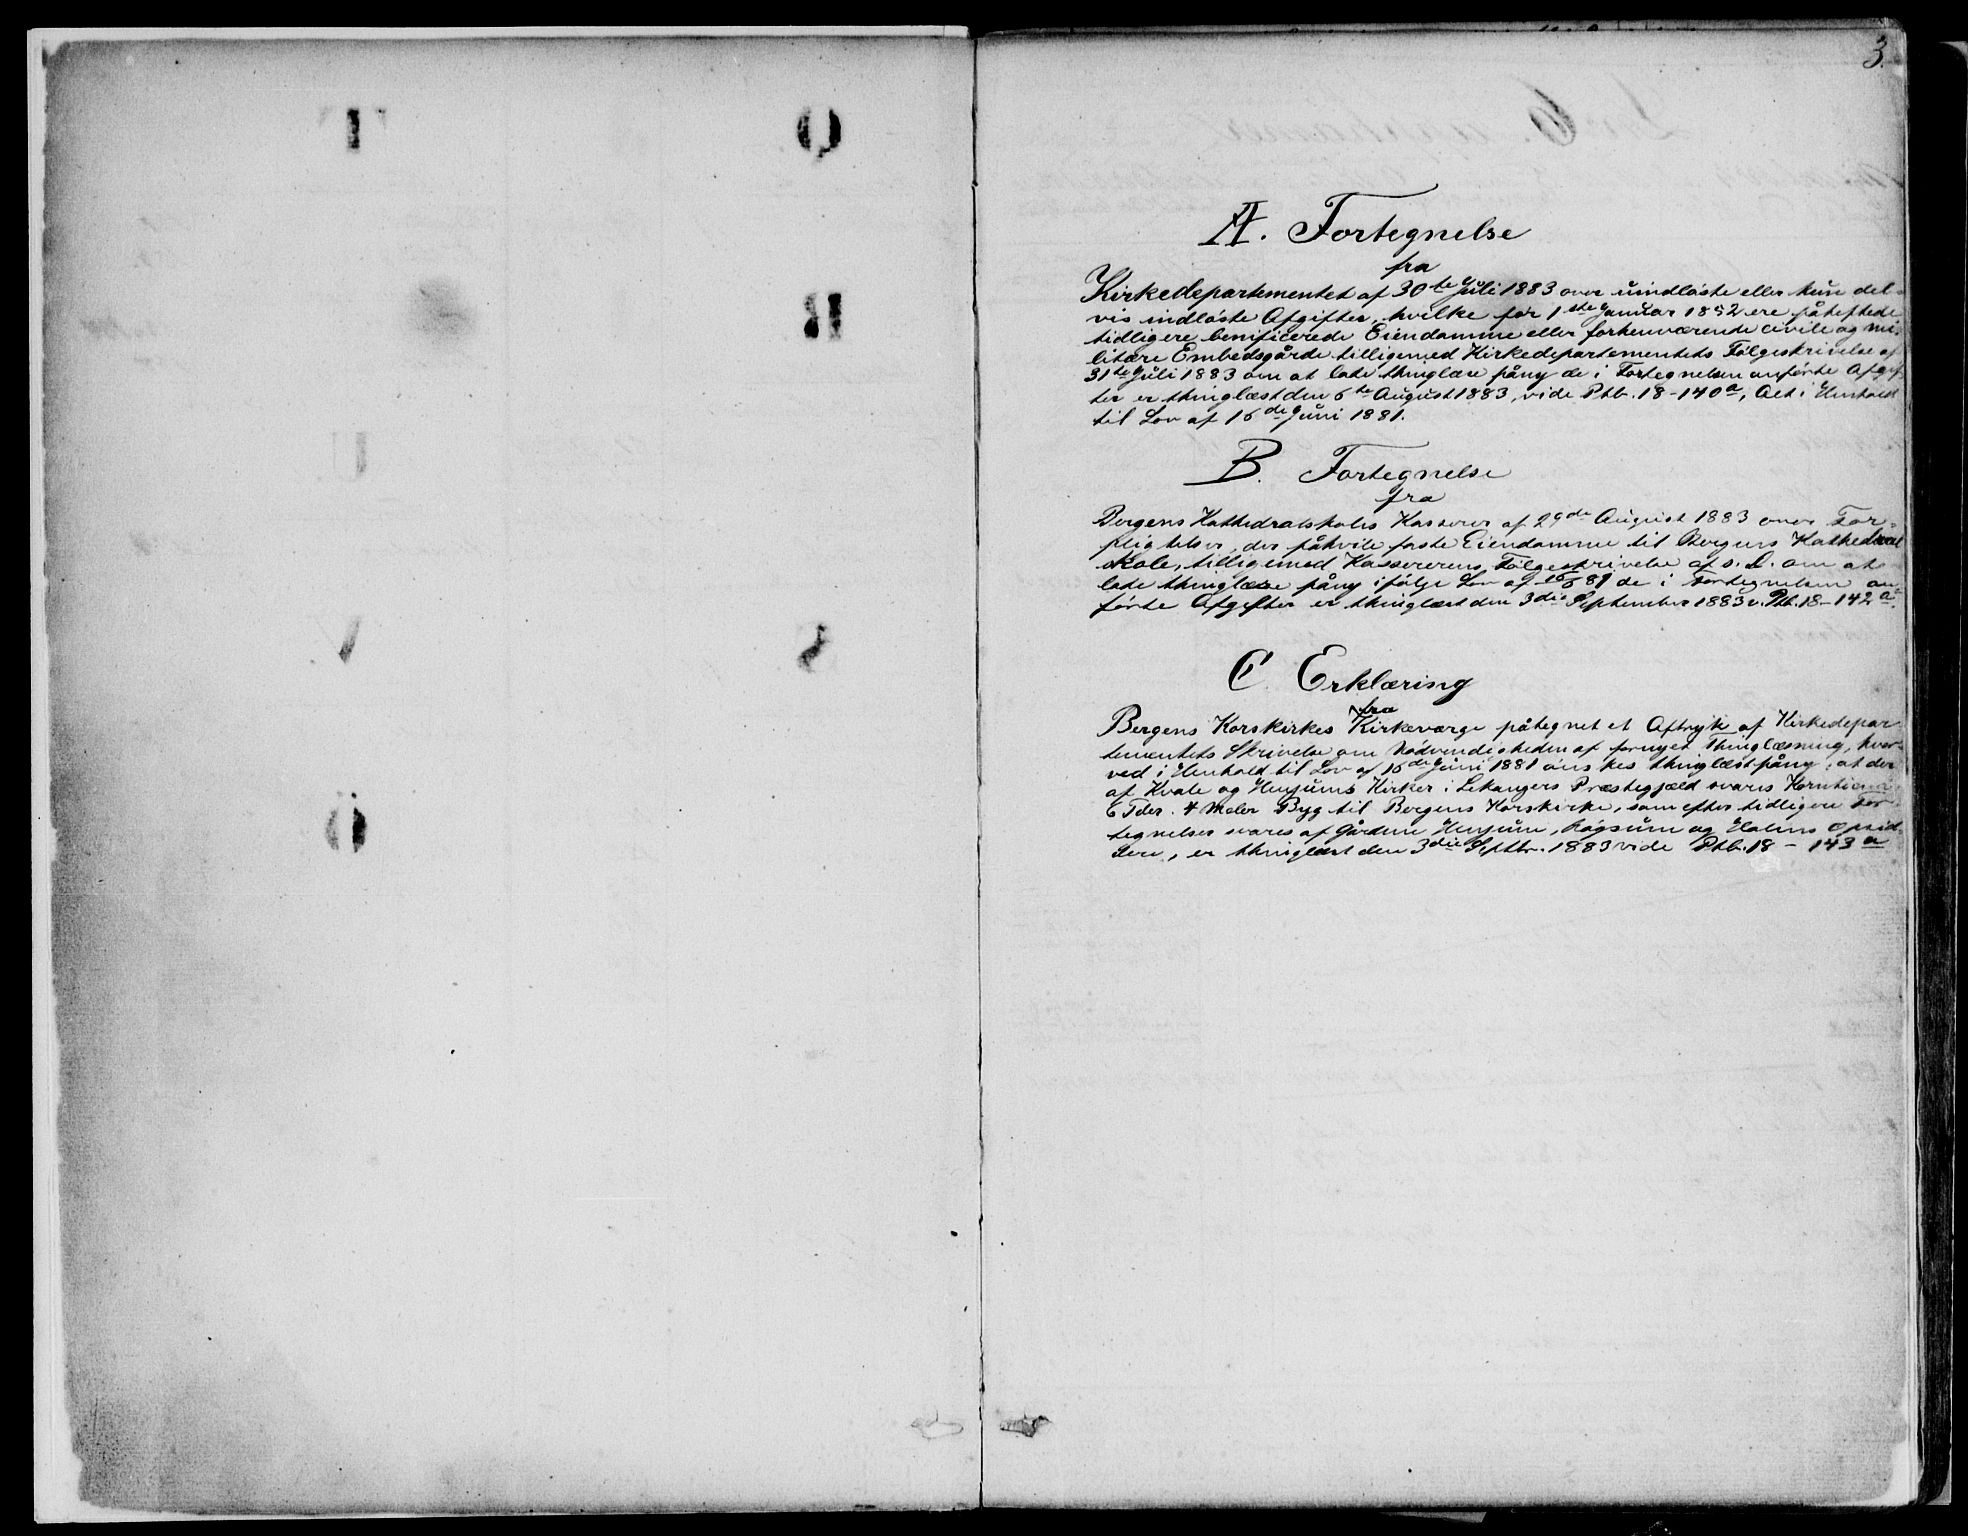 3.
A. Fortegnelse
fra
Kirkedepartementet af 30te Juli 1883 over uindløste eller kun del-
vis indløste Afgifter, hvilke før 1ste Januar 1852 ere påheftede
tidligere benificerede Eiendomme eller forhenværende civile og mi-
litære Embedsgårde tilligemed Kirkedepartementets Følgeskrivelse af
31te Juli 1883 om at lade thinglæse påny de i Fortegnelsen anførte Afgif-
ter er thinglæst den 6te August 1883, vide Ptb. 18-140a, Alt i Henhold
til Lov af 16de Juni 1881.
B. Fortegnelse
fra
Bergens Kathedralskoles Kasserer af 29de August 1883 over For-
pligtelser, der påhvile faste Eiendomme til Bergens Kathedral
skole, tilligemed Kassererens Følgeskrivelse af s. D. om at
lade thinglæse påny ifølge Lov af 16/6 81 de i Fortegnelsen an-
førte Afgifter er thinglæst den 3die September 1883 v. Ptb. 18-142a.
C. Erklæring
fra
Bergens Korskirkes Kirkeværge påtegnet et Aftryk af Kirkedepar
tementets Skrivelse om Nødvendigheden af fornyet Thinglæsning, hvor-
ved i Henhold til Lov af 16de Juni 1881 önskes thinglæst påny, at der
af Kvale og Henjums Kirker i Lekangers Præstegjæld svares Korntiende
6 Tdr. 4 Meler Byg til Bergens Korskirke, som efter tidligere For-
tegnelser svares af Gårdene Henjum, Røysum og Holms Opsid-
dere, er thinglæst den 3die Septbr. 1883 vide Ptb. 18 - 143a